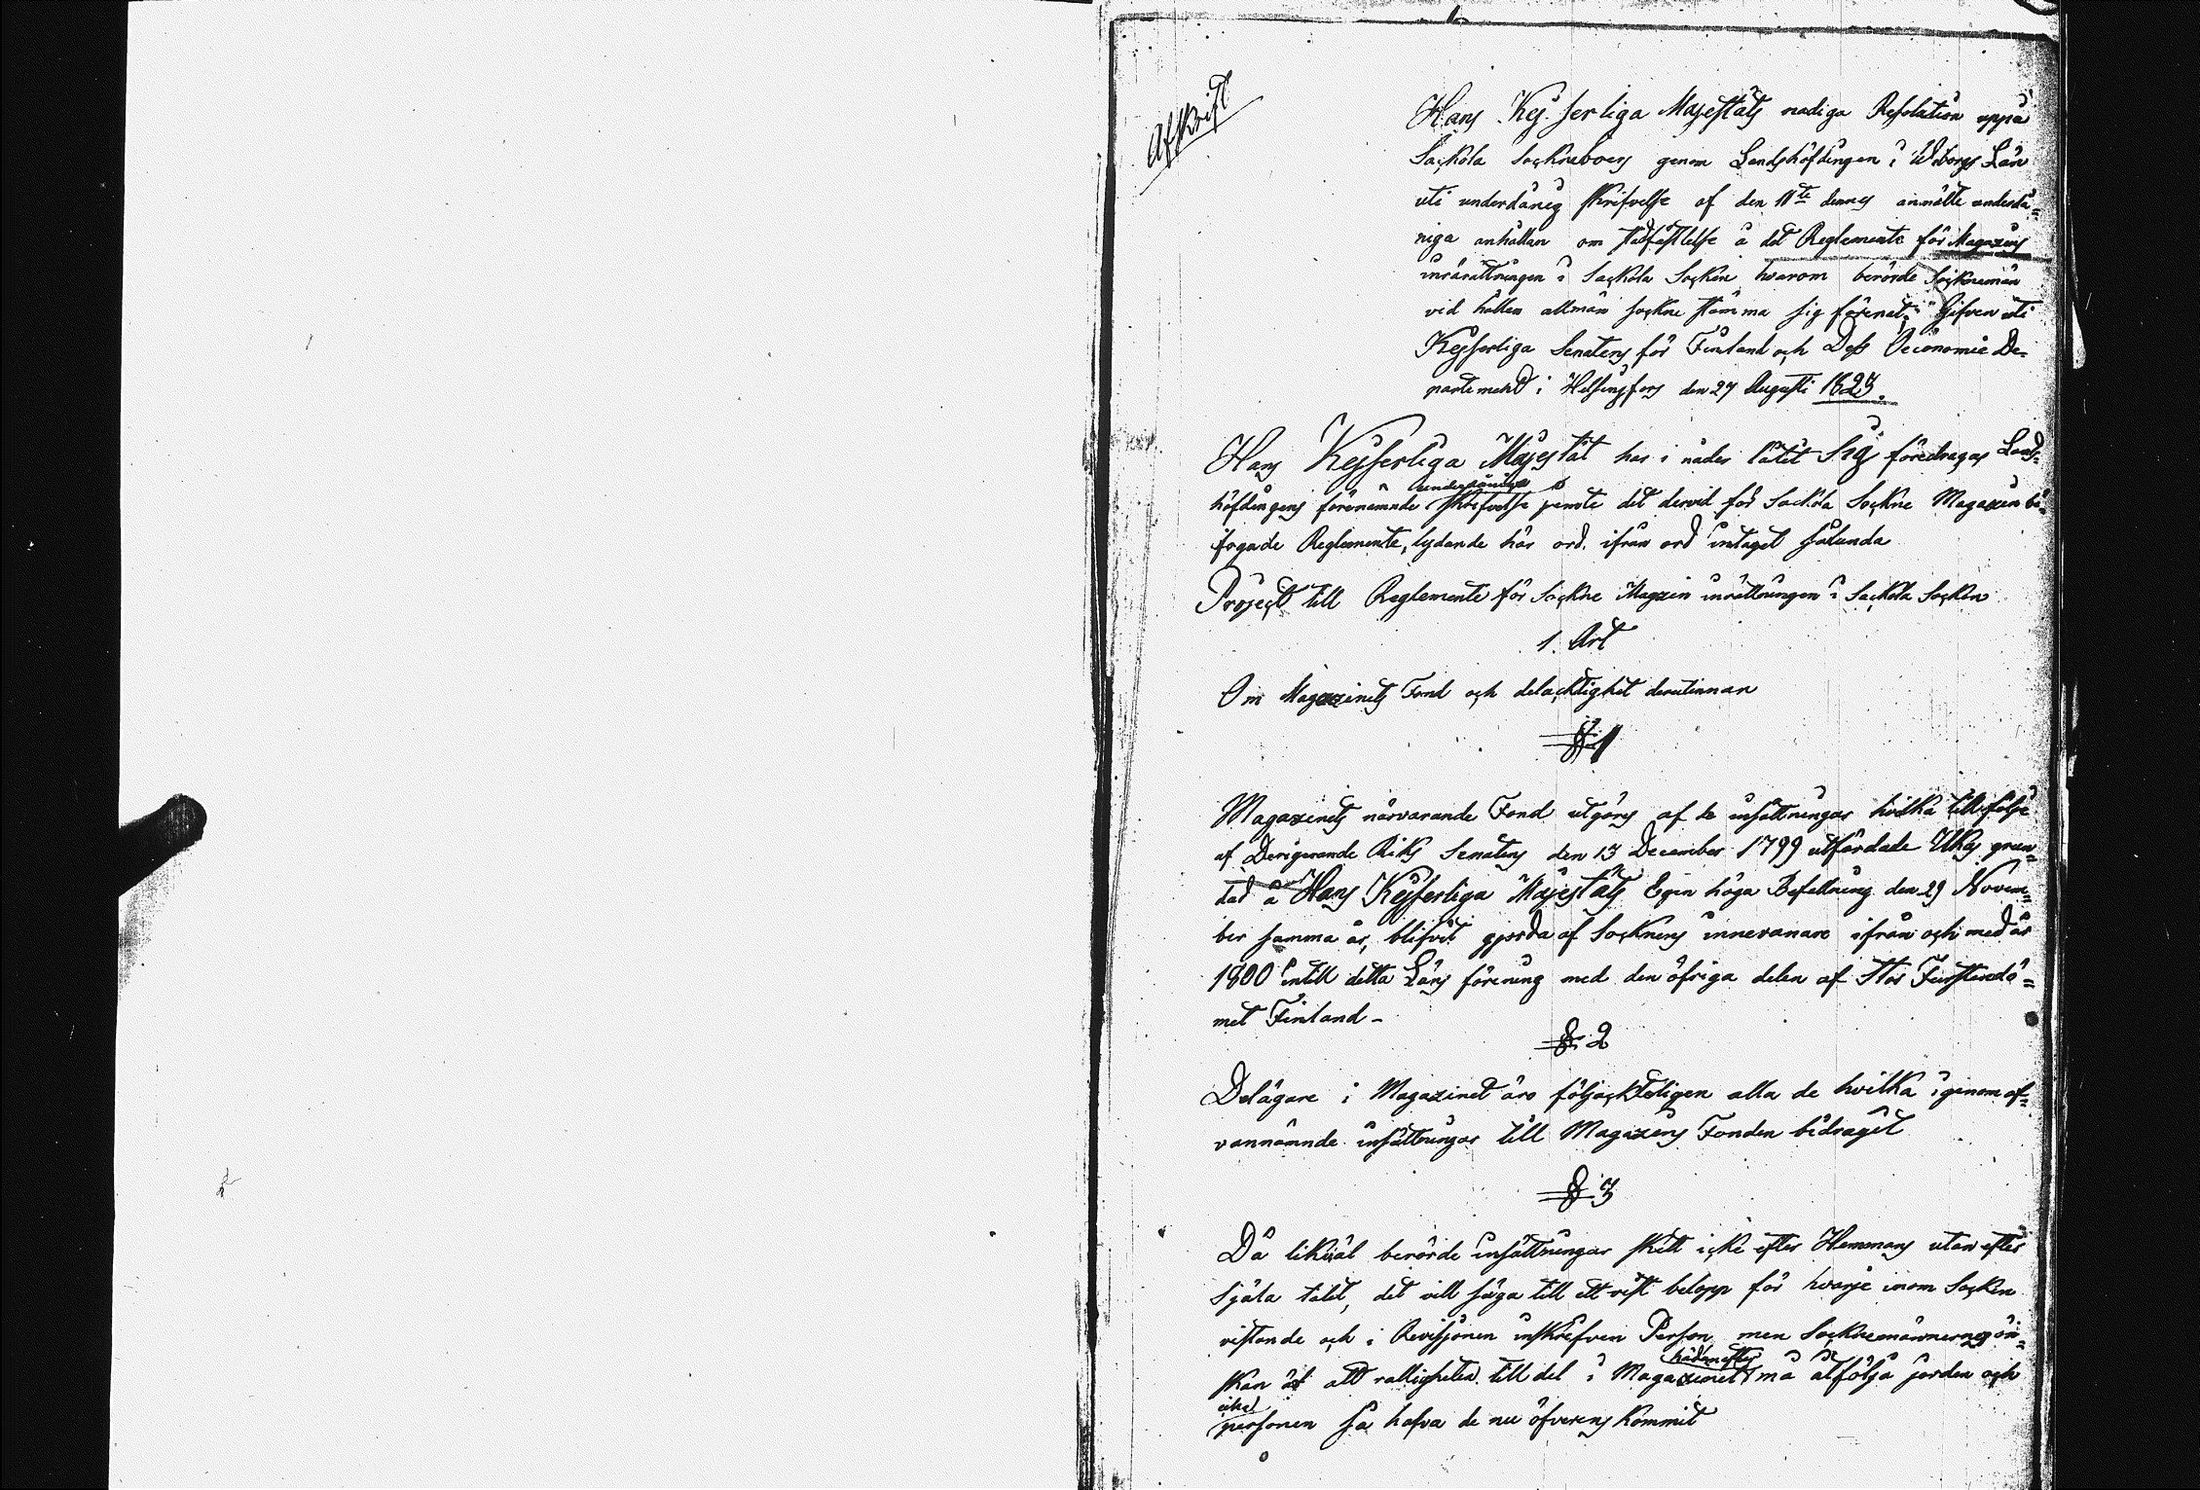 Afskrift
Hans Kejserliga Majestäts nådiga Resolution uppå
Sackola Socknebors genom Landshöfdingen i Wiborgs Län
uti underdånig skrifvelse af den 11te dennes anmälte underdå=
niga anhållan om stadfästelse å det Reglemente för Magazins
inrärattningen i Sackola Socken hvarom berörde Socknemän
vid hållen allmän sockne stämma sig förenat; Gifven uti
Kejserliga Senatens för Finland och Dess Oeconomie De-
partement i Helsingfors den 27 Augusti 1823.
Hans Kejserliga Majestät har i nåder låtit Sig föredragas Lands=
underdånige
höfdingens förenämnde skrifvelse jemte det dervid för Sackola Sockne Magazin bi=
fogade Reglemente, lydande här ord ifrån ord intaget sålunda
Project till Reglemente för Sockne Magzin inrättningen i Sackola Socken
1. Art
Om Magazinets Fond och delacktighet derutinnan
§ 1
Magazinets närvarande Fond utgörs af de insättningar hvilka till följe
af Dirigerande Riks Senatens den 13 December 1799 utfärdade Ukas grun=
dad å Hans Kejserliga Majestäts Egen höga Befallning den 29 Novem=
ber samma år, blifvit gjorda af Socknens innevånare ifrån och med år
1800 intill detta Läns förening med den öfriga delen af Stor Furstendö=
met Finland -
§ 2
Delägare i Magazinet äro följacktteligen alla de hvilka igenom of=
vannämnde insättningar till Magazins Fonden bidragit
§ 3
Då likväl berörde insättningar skett icke efter Hemmans utan efter
Själa talet, det vill säga till ett visst belopp för hvarje inom Socken
vistande och i Revisjonen inskrefven Person men Socknemännernas ön=
hädanefter
skan är att rättigheten till del i Magazinet må åtfölja jorden och
icke
personen så hafva de nu öfverens kommit